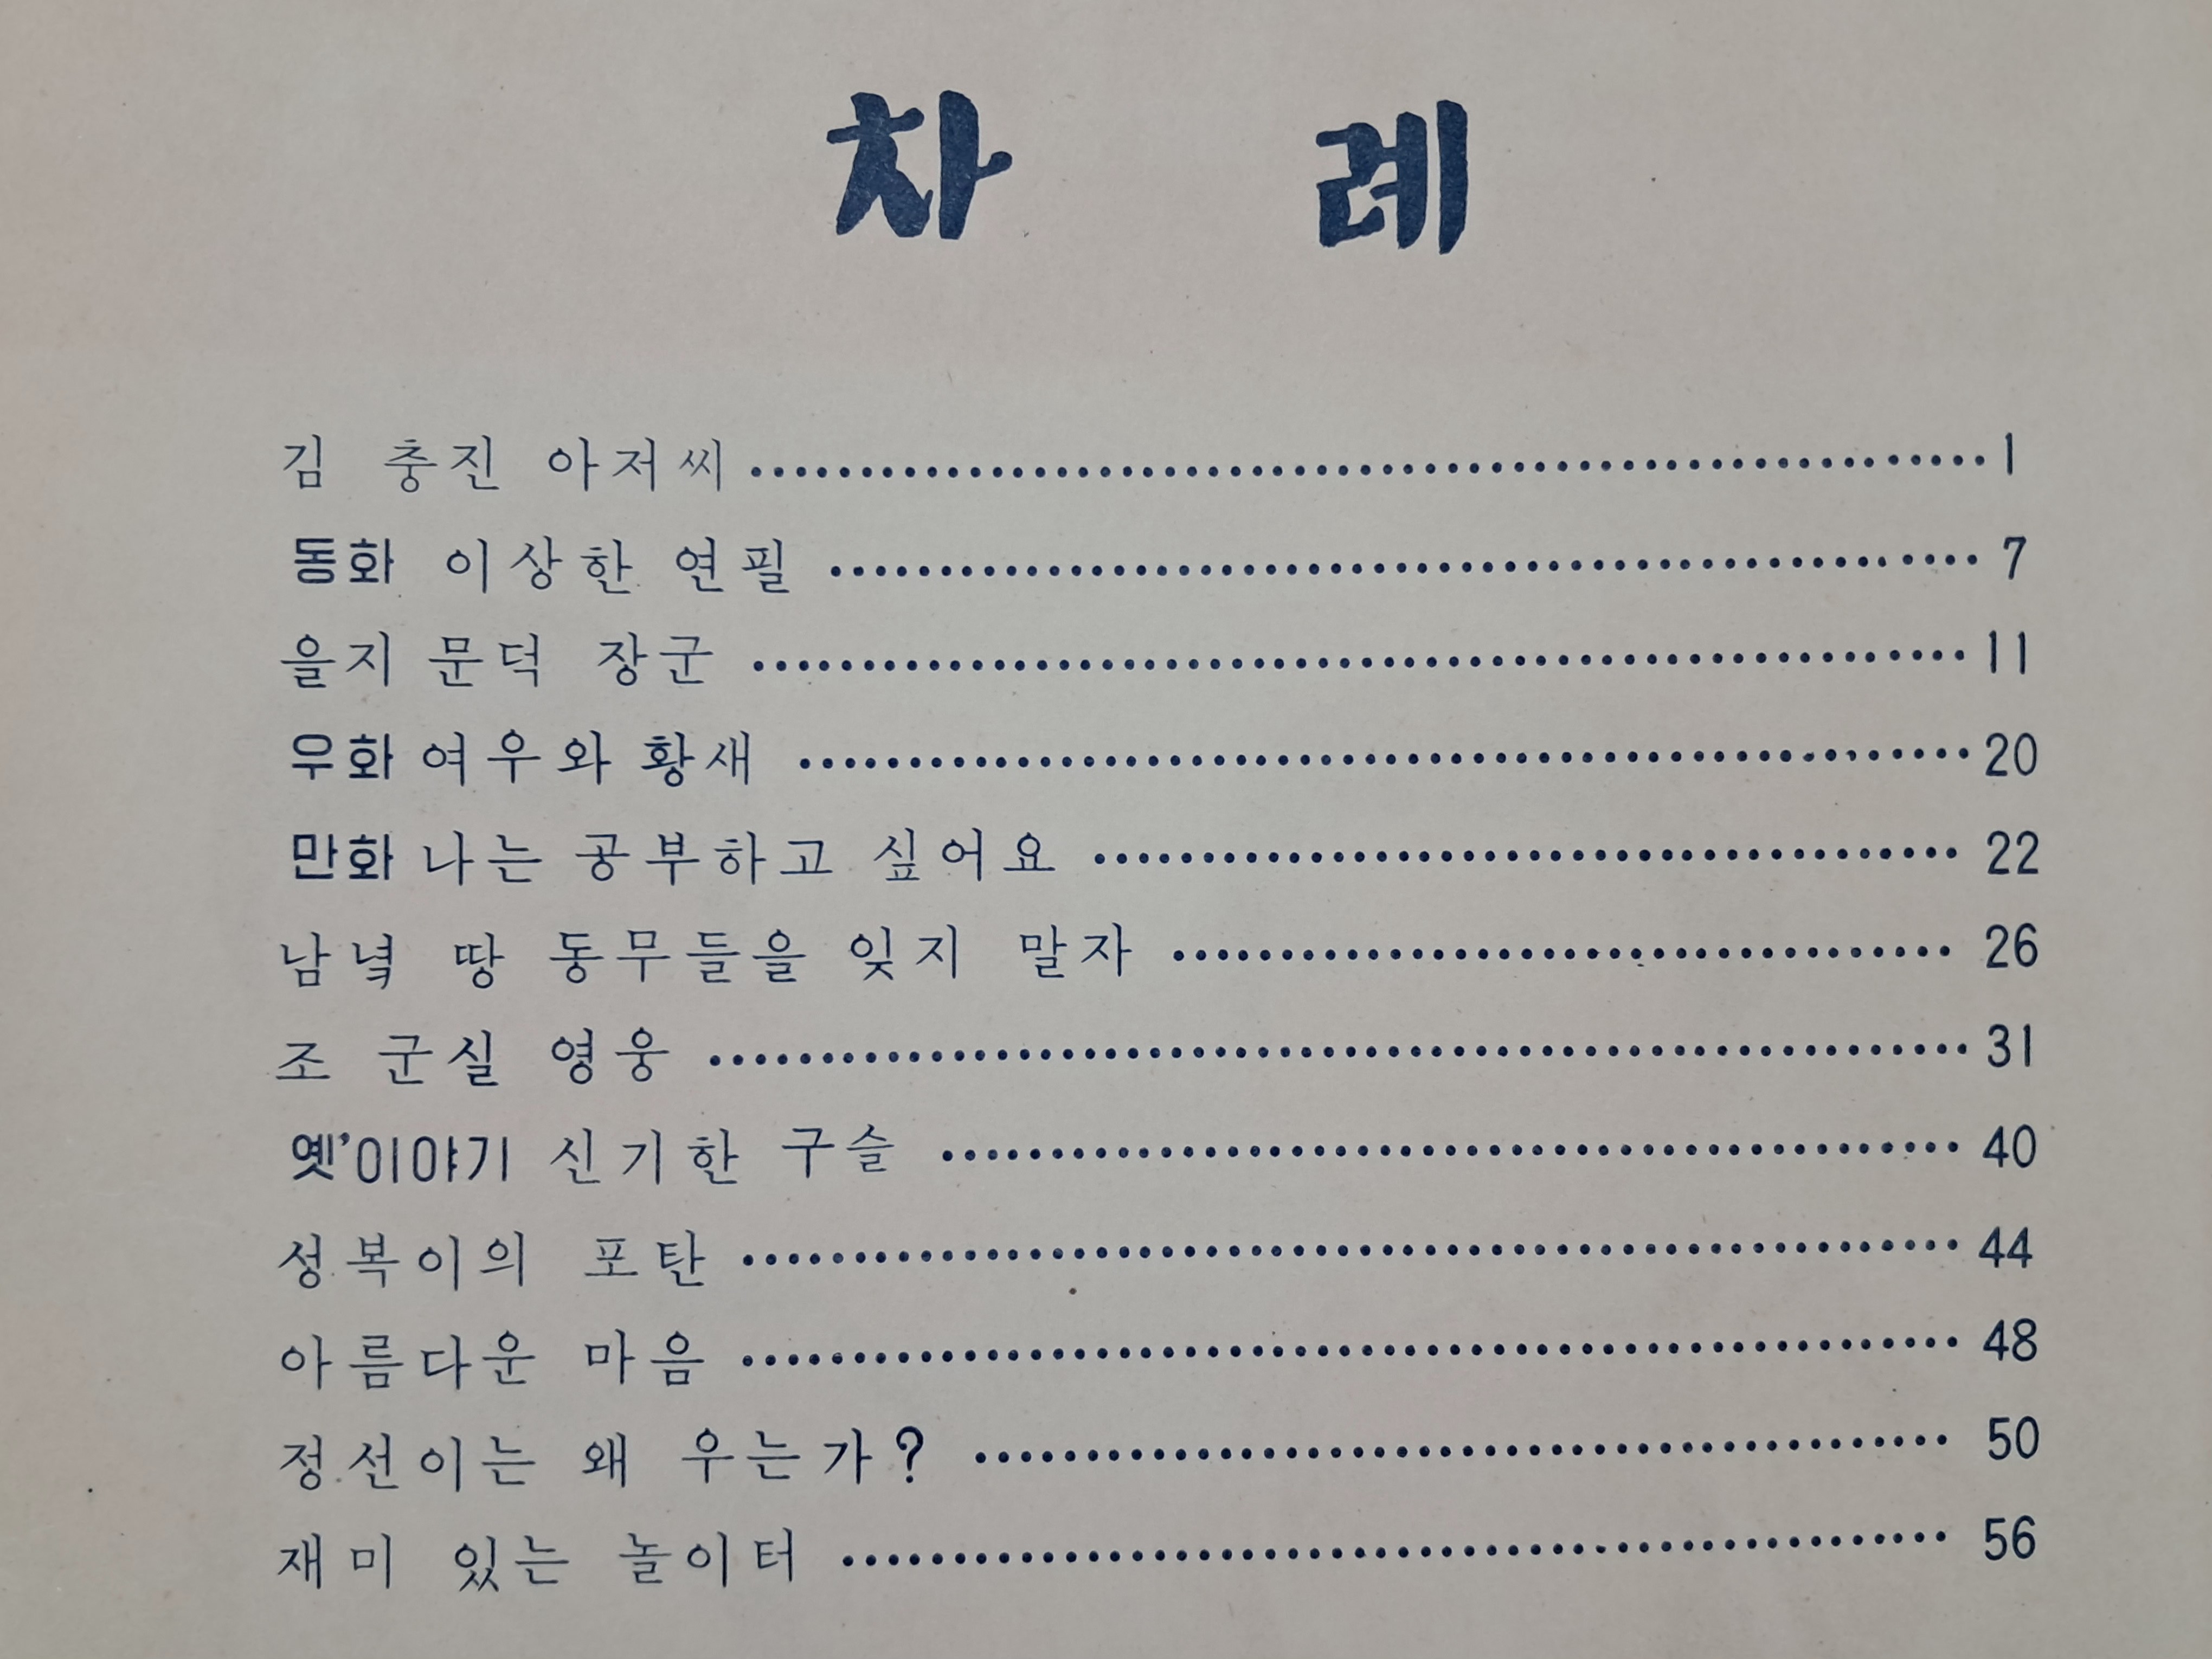 차 례
김 충진 아저씨 1
동화 이상한 연필 7
을지 문덕 장군 11
우화 여우와 황새 20
만화 나는 공부하고 싶어요 22
남녘 땅 동무들을 잊지 말자 26
조 군실 영웅 31
옛'이야기 신기한 구슬 40
성복이의 포탄 44
아름다운 마음 48
정선이는 왜 우는가? 50
재미 있는 놀이터 56